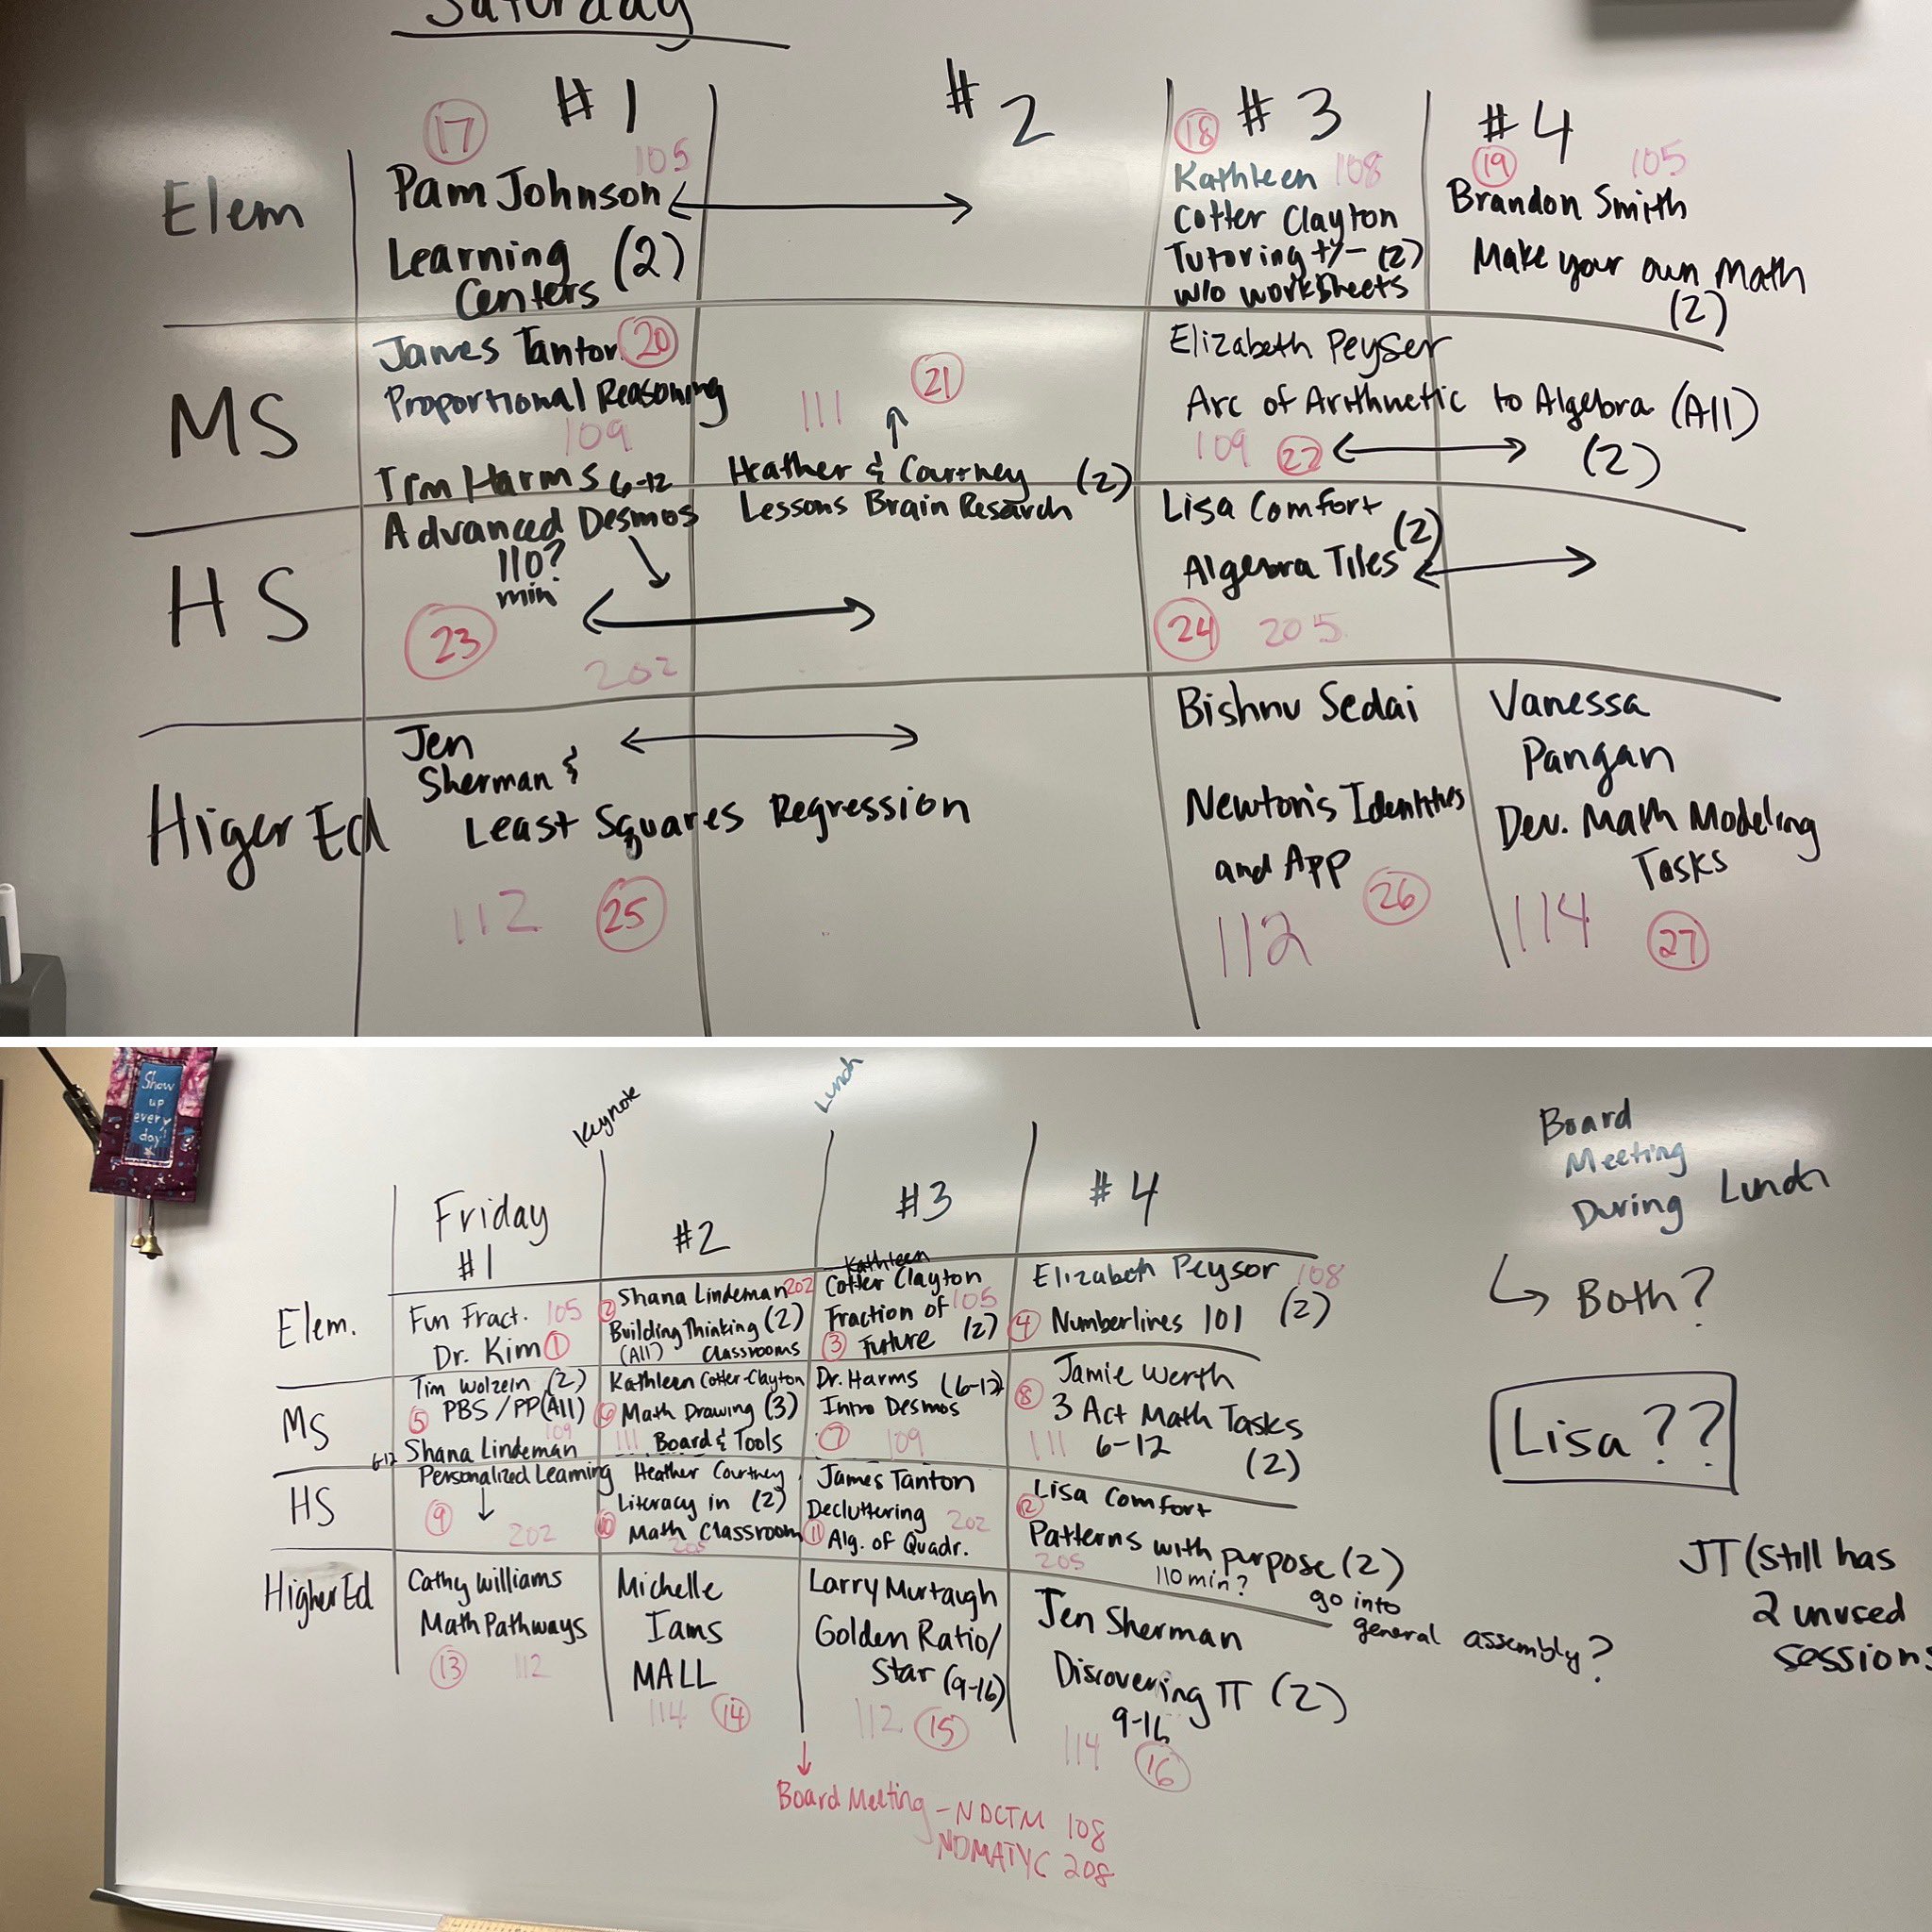 Saturday
#1
#2
#3
#4
Elem
17
105
Pam Johnson
Learning (2)
Centers
18
Kathleen 108
Cotter Clayton
Tutoring +/- (2)
w/o worksheets
19
105
Brandon Smith
Make your own Math
(2)
MS
James Tanton 20
Proportional Reasoning
109
111
21
Elizabeth Peyser
Arc of Arithmetic to Algebra (All)
109 22
(2)
Tim Harms 6-12
Advanced Desmos
110?
min
Heather & Courtney (2)
Lessons Brain Resarch
HS
23
202
Lisa Comfort
(2)
Algebra Tiles
24 205
Higer Ed
Jen
Sherman &
Least Squares Regression
112 25
Bishnu Sedai
Newton's Identities
and App
26
112
Vanessa
Pangan
Dev. Math Modeling
Tasks
114
27
Show
up
every
day!
Keynote
Lunch
Friday
#1
#2
#3
#4
Elem.
Fun Fract. 105
Dr. Kim 1
Shana Lindeman 202
2
Building Thinking (2)
(All) Classrooms
Kathleen
Cotter Clayton
Fraction of 105
3 Future (2)
Elizabeth Peysor 108
4 Numberlines 101 (2)
MS
Tim Wolzein (2)
5 PBS/PP (All)
109
Kathleen Cotter-Clayton
6 Math Drawing (3)
111 Board & Tools
Dr. Harms (6-12)
Intro Desmos
7 109
Jamie Werth
8 3 Act Math Tasks
111 6-12
(2)
6-12 Shana Lindeman
Personalized Learning
HS
9
202
Heather Courtney
Literacy in (2)
10 Math Classroom
205
James Tanton
Decluttering 202
11 Alg. of Quadr.
Lisa Comfort
12
Patterns with purpose (2)
205
110 min?
go into
general assembly?
Higher Ed
Cathy Williams
Math Pathways
13 112
Michelle
Iams
MALL
114 14
Larry Murtaugh
Golden Ratio/
Star (9-16)
112 15
Jen Sherman
Discovering π (2)
9-16
114
16
Board Meeting - NDCTM 108
NDMATYC 208
Board
Meeting
During Lunch
Both?
Lisa??
JT (still has
2 unused
sessions